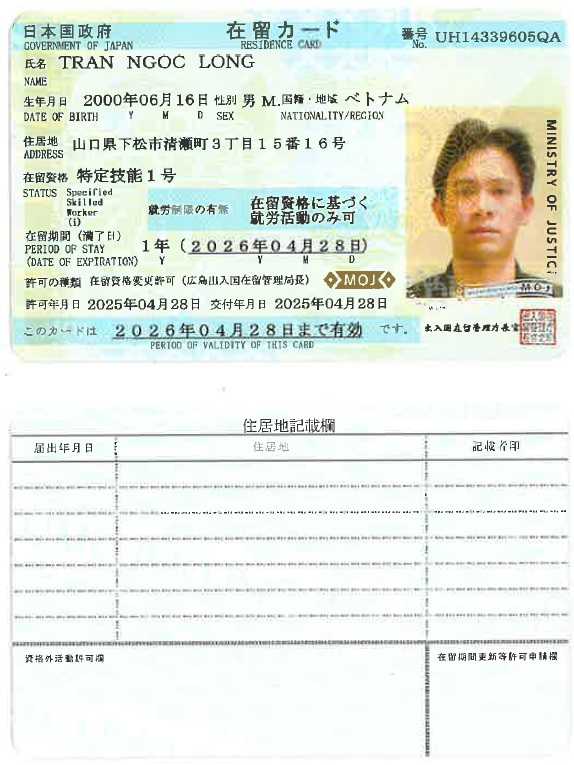 日本国政府 在留カード 番号 UH14339605QA
GOVERNMENT OF JAPAN RESIDENCE CARD No.
氏名 TRAN NGOC LONG
NAME
生年月日 2000年06月16日 性別 男 M. 国籍・地域 ベトナム
DATE OF BIRTH Y M D SEX NATIONALITY/REGION
住居地 山口県下松市清瀬町3丁目15番16号
ADDRESS
在留資格 特定技能1号
STATUS Specified
Skilled
Worker
(i)
就労制限の有無 在留資格に基づく
就労活動のみ可
在留期間(満了日) 1年(2026年04月28日)
PERIOD OF STAY
(DATE OF EXPIRATION) Y Y M D
許可の種類 在留資格変更許可(広島出入国在留管理局長) MOJ
許可年月日 2025年04月28日 交付年月日 2025年04月28日
このカードは 2026年04月28日まで有効 です。
PERIOD OF VALIDITY OF THIS CARD
MINISTRY OF JUSTICE
MOJ
出入国在留管理庁長官
住居地記載欄
届出年月日 住居地 記載者印
資格外活動許可欄 在留期間更新等許可申請欄